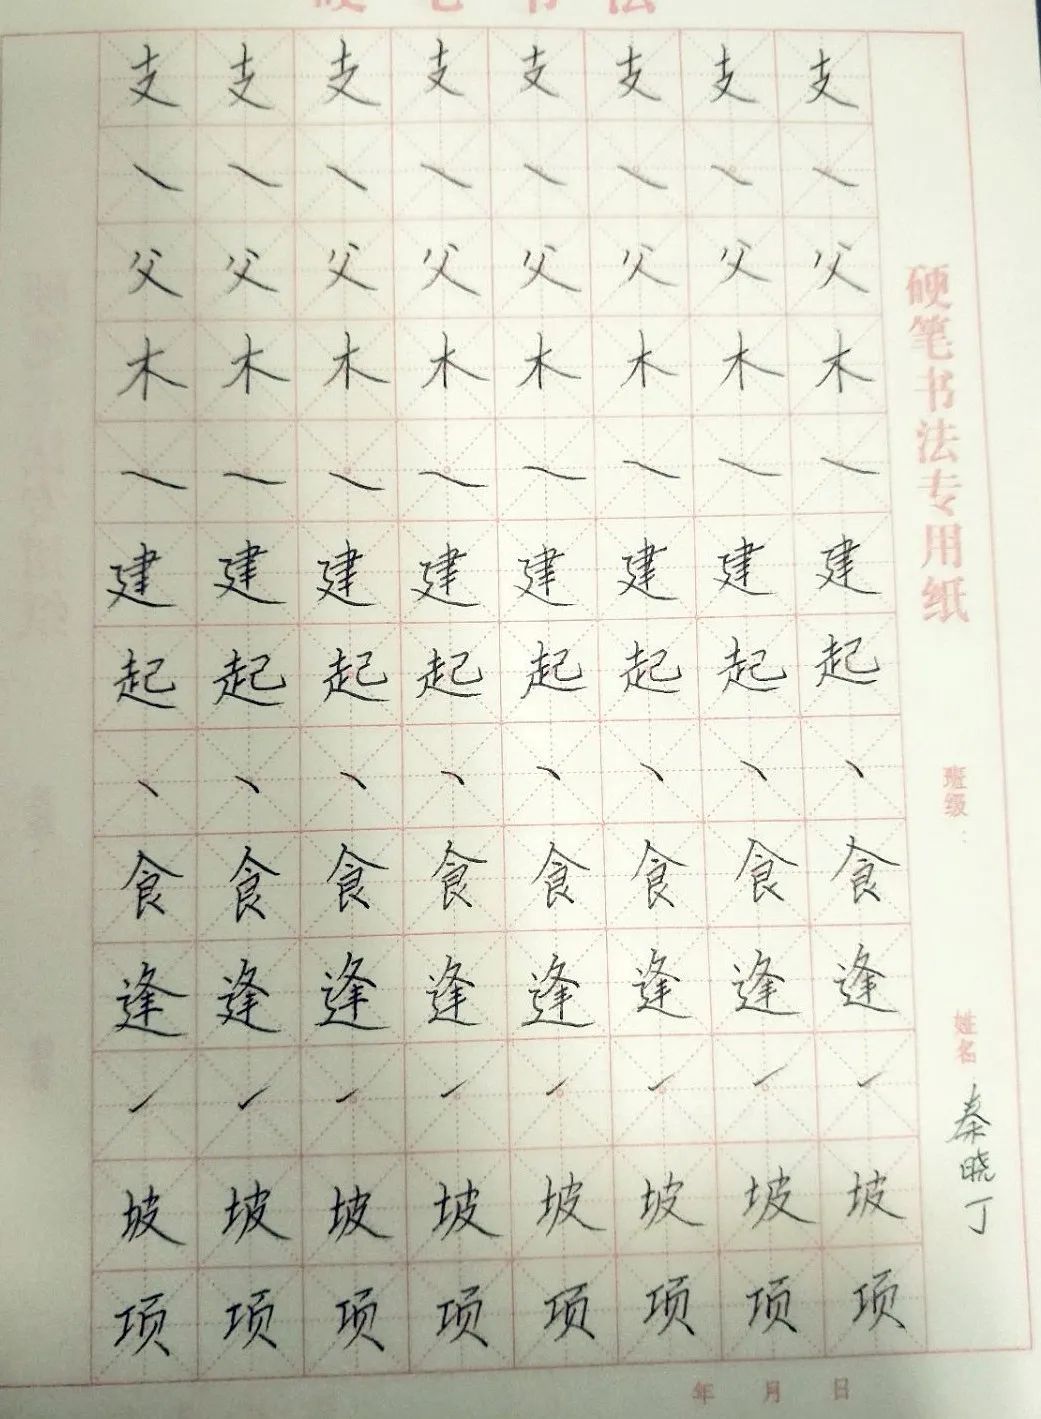 硬笔书法
支支支支支支支支
父父父父父父父父
木木木木木木木木
建建建建建建建建
起起起起起起起起
食食食食食食食食
逢逢逢逢逢逢逢逢
坡坡坡坡坡坡坡坡
项项项项项项项项
硬笔书法专用纸
班级:
姓名 秦晓丁
年 月 日